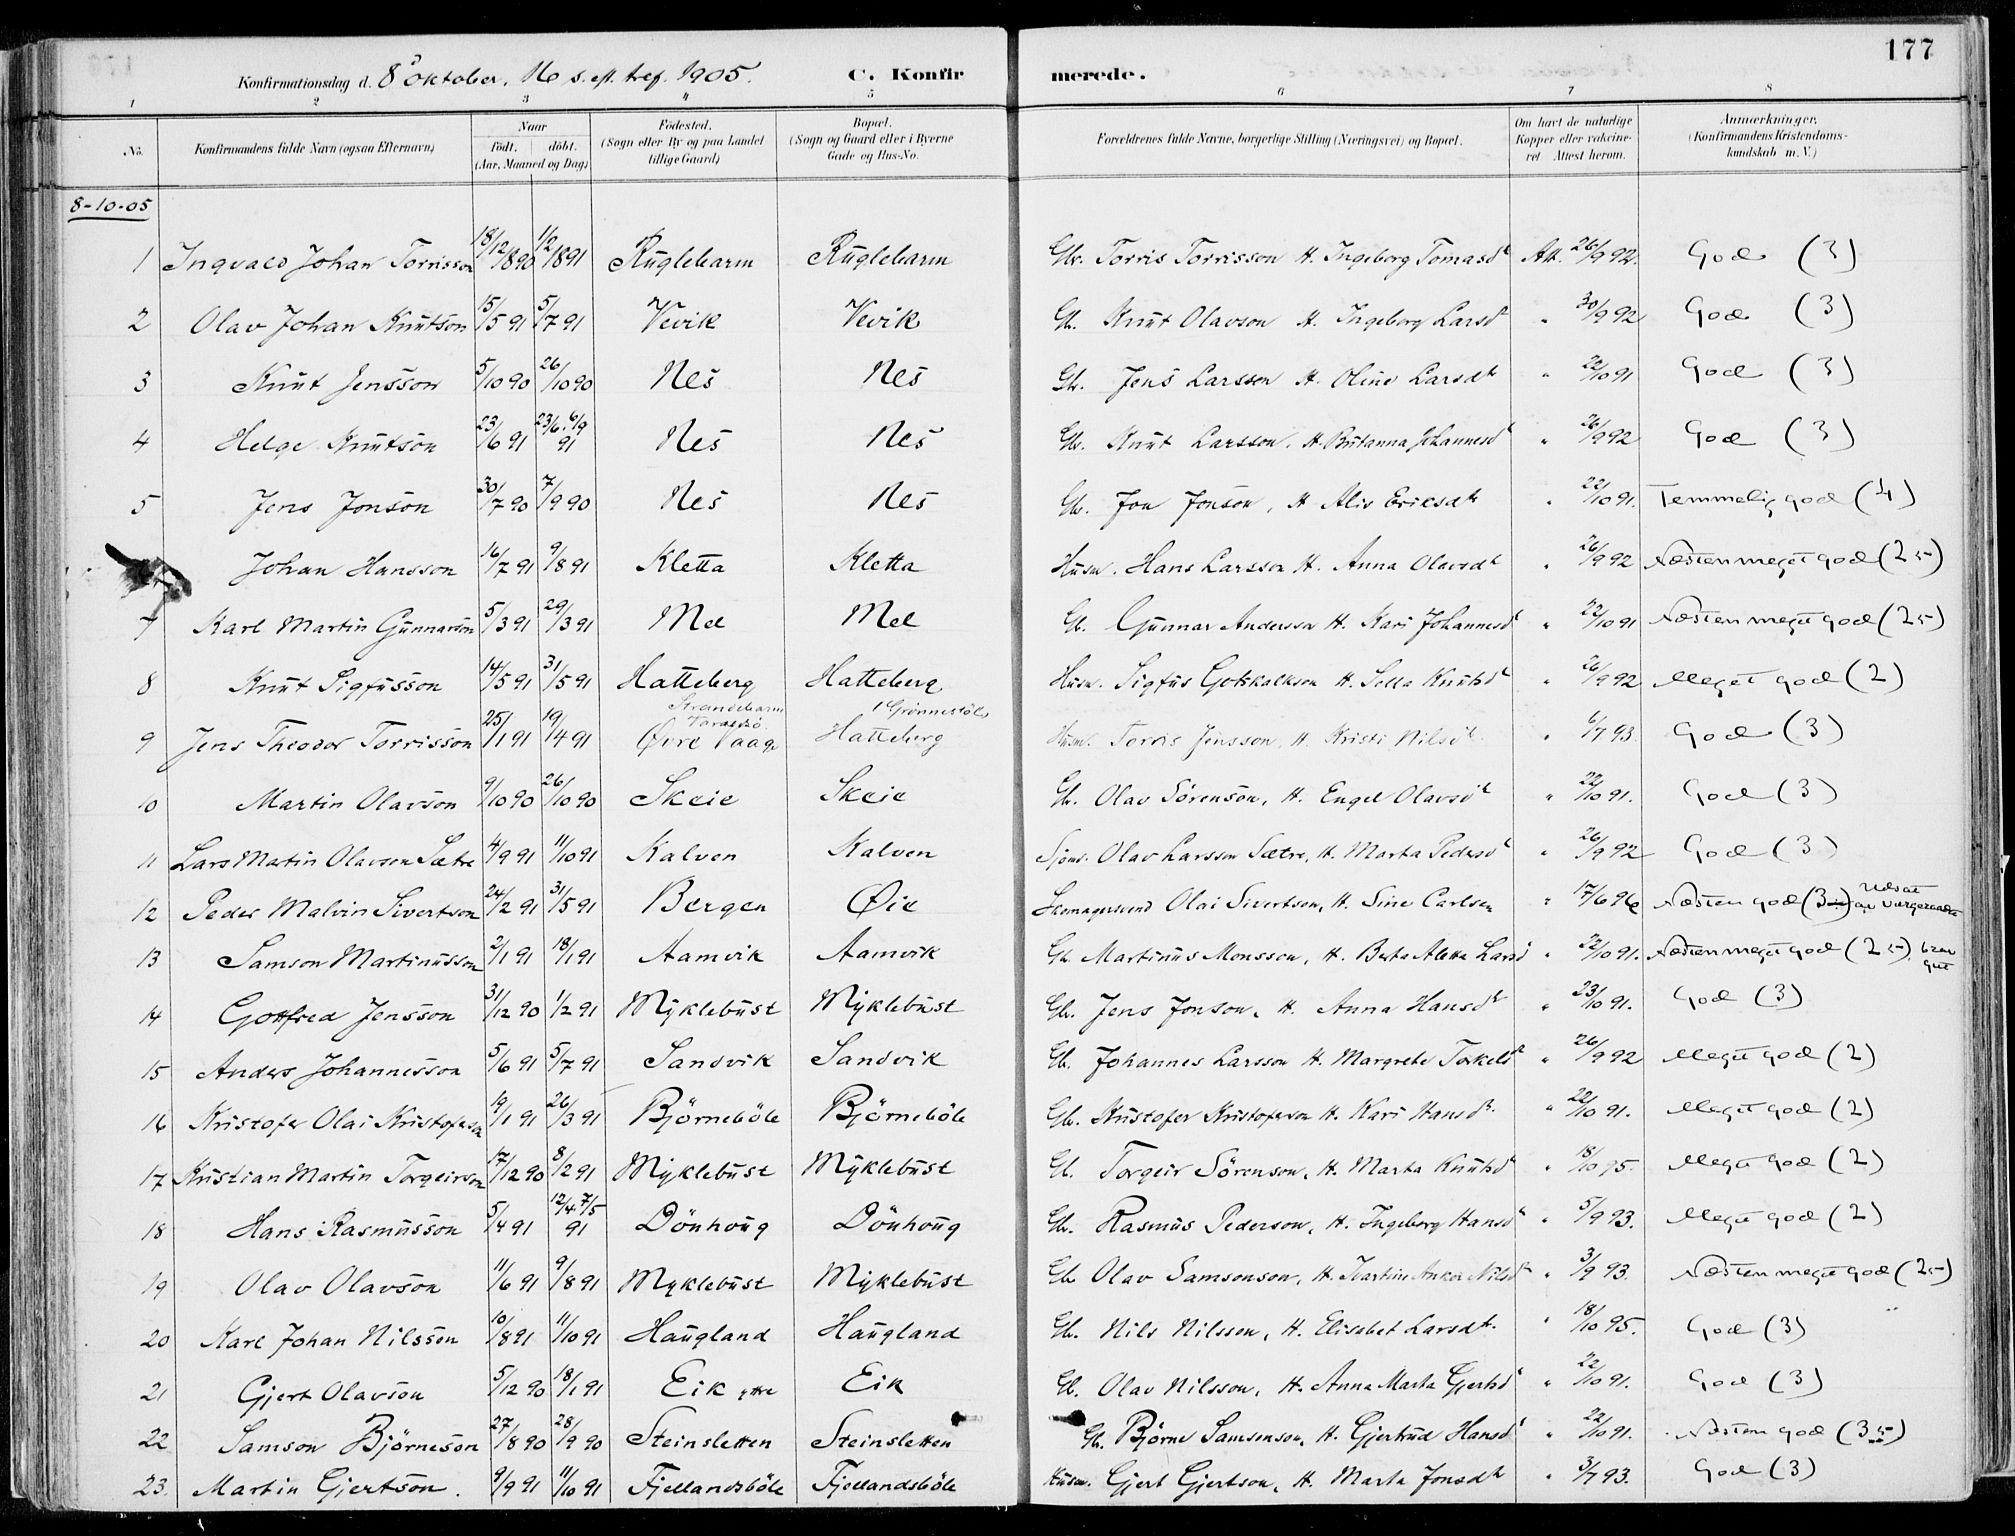 177
Konfirmationsdag d. 8 oktober, 16 s. eft. tref. 1905. C. Konfirmerede.
1 2 3 4 5 6 7 8
No. Konfirmandens fulde Navn (ogsaa Efternavn) Naar født. døbt. (Aar, Maaned og Dag) Fødested. (Sogn eller By og paa Landet tillige Gaard) Bopæl. (Sogn og Gaard eller i Byerne Gade og Hus-No. Forældrenes fulde Navne, borgerlige Stilling (Næringsvei) og Bopæl. Om havt de naturlige Kopper eller vakcineret Attest herom. Anmærkninger. (Konfirmandens Kristendomskundskab m. V.)
8-10-05
1 Ingvald Johan Torrisson 18/12 1890 1/2 1891 Ruglebarm Ruglebarm Gbr. Torris Torrisson H. Ingeborg Tomasdt Att. 26/9 92. God (3)
2 Olav Johan Knutson 15/5 91 5/7 91 Vevik Vevik Gb. Knut Olavson H. Ingeborg Larsdt " 30/9 92 God (3)
3 Knut Jensson 5/10 90 26/10 90 Nes Nes Gb. Jens Larsson H. Oline Larsdt " 22/10 91 God (3)
4 Helge Knutson 23/6 91 23/6, 6/9 91 Nes Nes Gb. Knut Larsson, H. Johannesdt " 26/9 92 God (3)
5 Jens Jonson 30/7 90 7/9 90 Nes Nes Gb. Jon Jonson, H. Alis Eriksdt " 22/10 91. Temmelig god (4)
Johan Hansson 16/7 91 9/8 91 Kletta Kletta Husm. Hans Larsson H. Anna Olavsdt " 26/9 92 Næsten meget god (25)
7 Karl Martin Gunnarson 5/3 91 29/3 91 Mel Mel Gb. Gunnar Andersson H. Kari Johannesdt " 22/10 91 Næsten meget god (25)
8 Knut Sigfusson 14/5 91 31/5 91 Hatteberg Hatteberg Husm. Sigfus Gotskalkson H. Knutsdt " 26/9 92 Meget god (2)
9 Jens Theodor Torrisson 25/1 91 19/4 91 Strandebarm Øvre Vaage Grønnestøl Hatteberg Husm. Torris Jensson, H. Kristi Nilsdt " 6/7 93. God (3)
10 Martin Olavson 9/10 90 26/10 90 Skeie Skeie Gb. Olav Sørenson, H. Engel Olavsdt " 22/10 91. God (3)
11 Lars Matin Olavsen Sætre 4/9 91 11/10 91 Kalven Kalven Sjøm. Olav Larsson Sætre, H. Marta Pedersdt " 26/9 92 God (3)
12 Peder Malvin Sivertson 24/2 91 31/5 91 Bergen Øie Skomagersvend Olai Sivertson, H. Sine Carlsen " 17/6 96 Næsten god (3) udsat av vergeraadet
13 Samson Martinusson 2/1 91 18/1 91 Aamvik Aamvik Gb. Martinus Monsson, H. Berta Aletta Larsdt " 22/10 91. Næsten meget god (25), brav gut
14 Gottfred Jensson 31/12 90 1/2 91 Myklebust Myklebust Gb. Jens Jonson, H. Anna Hansdt " 23/10 91. God (3)
15 Anders Johannesson 5/6 91 5/7 91 Sandvik Sandvik Gb. Johannes Larsson H. Margrete Torkelsdt " 26/9 92 Meget god (2)
16 Kristofer Olai Kristoferson 19/1 91 26/3 91 Bjørnebøle Bjørnebøle Gb. Kristofer Kristoferson H. Kari Hansdt. " 22/10 91. Meget god (2)
17 Kristian Martin Torgeirson 17/12 90 8/2 91 Myklebust Myklebust Gb. Torgeir Sörenson, H. Marta Knutsdt " 18/10 95. Meget god (2)
18 Hans Rasmusson 5/4 91 12/4 7/5 91 Dönhoug Dönhoug Gb. Rasmus Pederson, H. Ingeborg Hansdt " 5/9 93. Meget god (2)
19 Olav Olavson 11/6 91 9/8 91 Myklebust Myklebust Gb Olav Samsonson, H. Nilsdt " 3/9 93. Næsten meget god (25)
20 Karl Johan Nilsson 10/8 91 11/10 91 Haugland Haugland Gb. Nils Nilsson, H. Elisabet Larsdt. " 18/10 95. God (3)
21 Gjert Olavson 5/12 90 18/1 91 Eik ytre Eik Gb. Olav Nilsson, H. Anna Marta Gjertsdt " 22/10 91. God (3)
22 Samson Björneson 27/8 90 28/9 90 Steinsletten Steinsletten Gb. Björne Samsonson, H. Gjertrud Hansdt " 22/10 91. Næsten god (35)
23. Martin Gjertson. 9/9 91 11/10 91 Fjellandsböle Fjellandsböle Husm. Gjert Gjertson, H. Marta Jonsdt " 3/7 93. God (3)